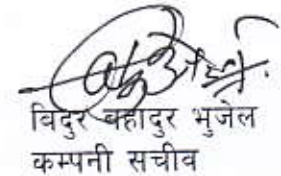 विदुर बहादुर भुजेल
कम्पनी सचीव